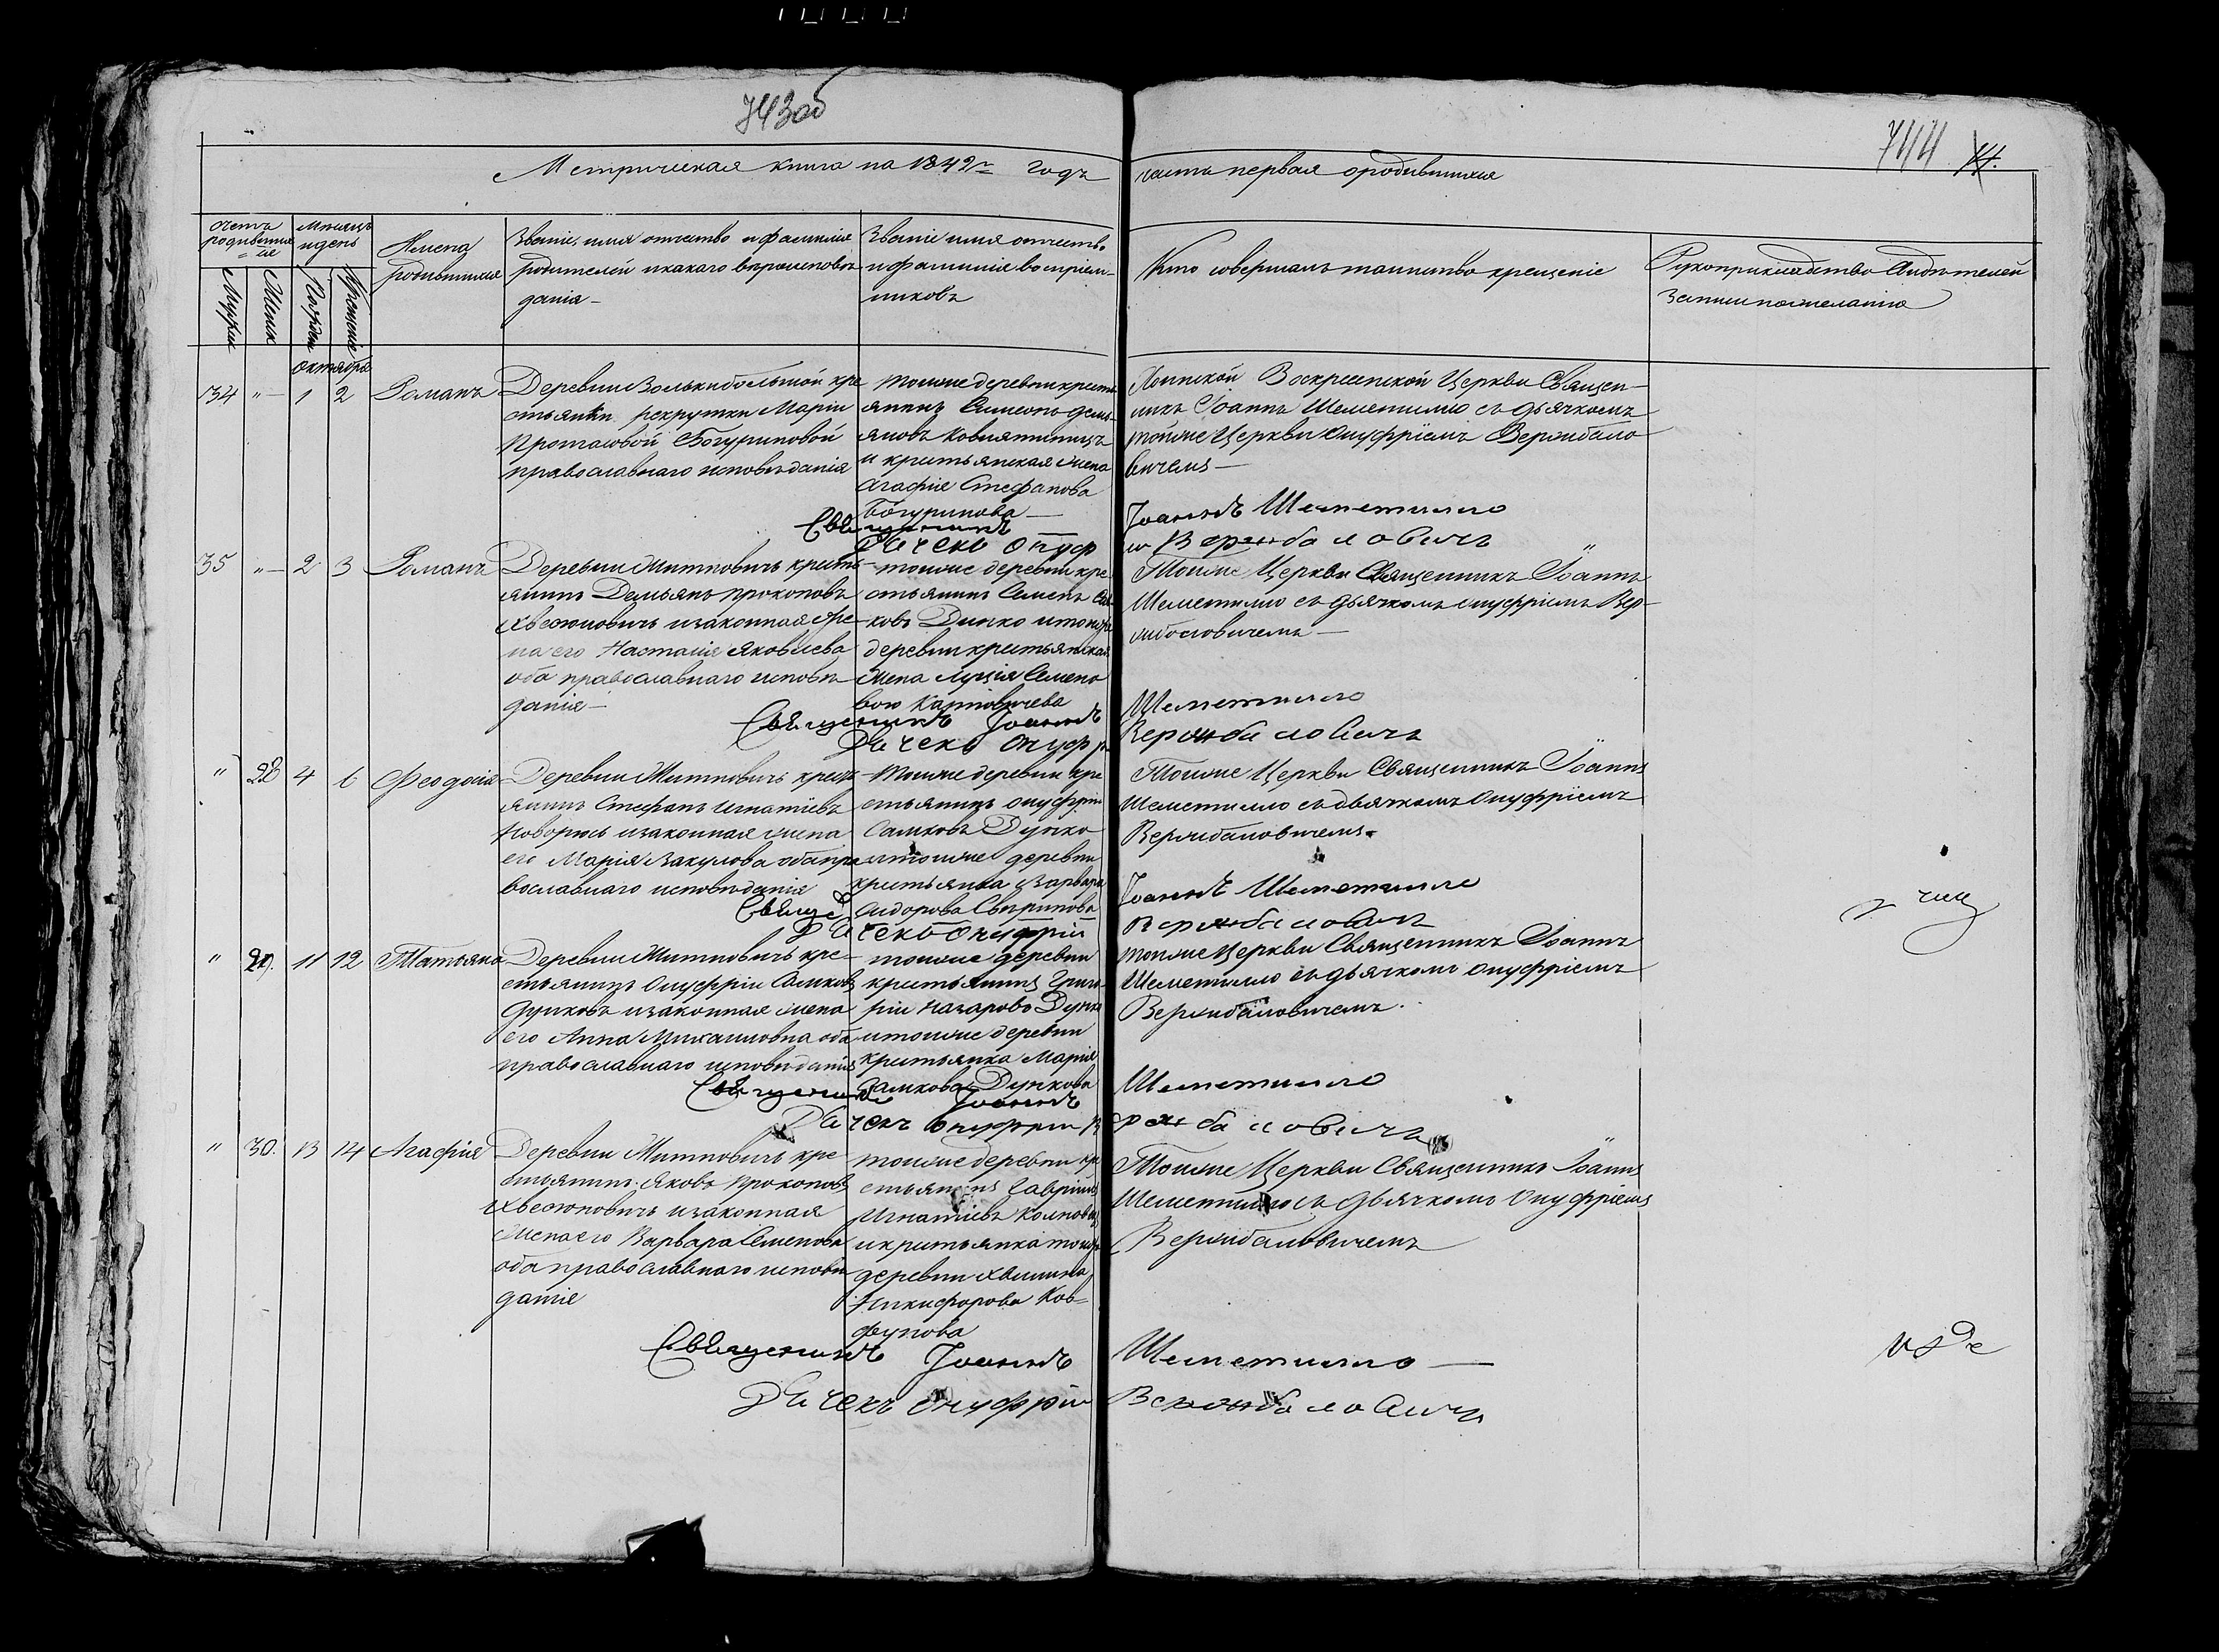 743об
744 74.
Метрическая книга на 1842й годъ часть первая ородившихся
Счетъ родившихся
Мужск
Женск
Мѣсяцъ и день
Рожден
Крещенія
Имена
родившихся
Званіе, имя отчество и фамилія
родителей икакаго вѣроисповѣ
данія
Званіе имя отчество
и фамилія воспріем-
никовъ
Кто совершалъ таинство крещеніе
Рукоприкладство свидѣтелей
записи пожеланію
октября
34 " 1 2 Романъ
Деревни большой кре
стьянки рекрутки Маріи
Протасовой Богуриновой
православнаго исповѣданія
тойже деревни крестья
янинъ Симеонъ Демь-
яновъ
и крестьянская жена
Агафія Стефанова
Богуринова
Воскресенской Церкви Священ-
никъ Іоаннъ Шеметилло съ дьячкомъ
тойже Церкви Онуфріемъ Вержбало
вичемъ
Священникъ Іоаннъ Шеметилло
Дьячекъ Онуфрій Вержбаловичъ
35 " 2 3 Романъ
Деревни Житновичъ кресть
янинъ Демьянъ Прокоповъ
Хвесюковичъ изаконная же
на его Настасія Яковлева
оба православнаго исповѣ
данія
тойже деревни кре
стьянинъ Семенъ
ковъ Динко итойже
деревни крестьянская
жена Луція Семено
вою Карповичева
Тойже Церкви Священникъ Іоаннъ
Шеметилло съ дьячкомъ Онуфріемъ Вер-
жбаловичемъ
Священникъ Іоаннъ Шеметилло
Дьячекъ Онуфр Вержбаловичъ
" 28 4 6 Феодосія
Деревни Житновичъ крест
янинъ Стефанъ Игнатіевъ
Говорюсь изаконная жена
его Марія Вакулова оба пра
вославнаго исповѣданія
тойже деревни кре
стьянинъ Онуфрій
Самковъ Дунко
итойже деревни
крестьянка Варвара
Сидорова Свиринова
Тойже Церкви Священникъ Іоаннъ
Шеметилло съ дьячкомъ Онуфріемъ
Вержбаловичемъ
Священ Іоаннъ Шеметилло
Дьячекъ Онуфрій Вержбаловичъ
" 29. 11 12 Татьяна
Деревни Житновичъ кре-
стьянинъ Онуфрій Самковъ
Дунковъ изаконная жена
его Анна Михаиловна оба
православнаго исповѣданія
тойже деревни
крестьянинъ Григо
рій Назаровъ Дунко
итойже деревни
крестьянка Марія
Самкова Дункова
тойже Церкви Священникъ Іоаннъ
Шеметилло съ дьячкомъ Онуфріемъ
Вержбаловичемъ
Священникъ Іоаннъ Шеметилло
Дьячекъ Онуфрій Вержбаловичъ
" 30. 13 14 Агафія
Деревни Житновичъ кре
стьянинъ Яковъ Прокоповъ
Хвесюковичъ изаконная
жена его Варвара Семенова
оба православнаго исповѣ
данія
тойже деревни кре
стьянинъ Гавріилъ
Игнатіевъ
икрестьянка тойже
деревни
Никифорова Ков-
фунова
Тойже Церкви Священникъ Іоаннъ
Шеметилло съ дьячкомъ Онуфріемъ
Вержбаловичемъ
Священникъ Іоаннъ Шеметилло
Дьячекъ Онуфрій Вержбаловичъ